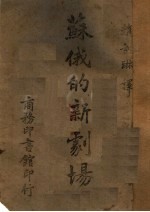 蘇俄的新劇場
商務印書館印行